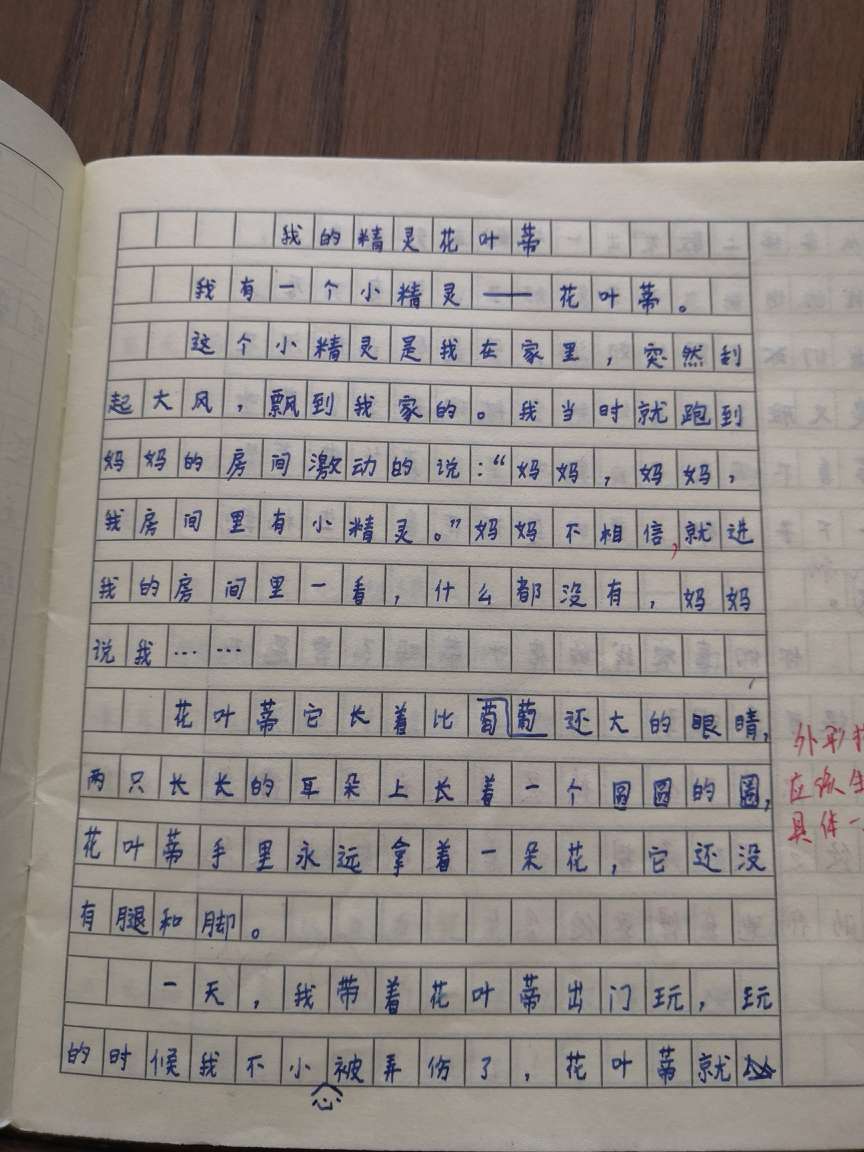 我的精灵花叶蒂
我有一个小精灵——花叶蒂。
这个小精灵是我在家里，突然刮
起大风，飘到我家的。我当时就跑到
妈妈的房间激动的说：“妈妈，妈妈，
我房间里有小精灵。”妈妈不相信，就进
我的房间里一看，什么都没有，妈妈
说我……
花叶蒂它长着比葡萄还大的眼睛，
两只长长的耳朵上长着一个圆圆的圈，
花叶蒂手里永远拿着一朵花，它还没
有腿和脚。
一天，我带着花叶蒂出门玩，玩
的时候我不小心被弄伤了，花叶蒂就
外形
应该生
具体一